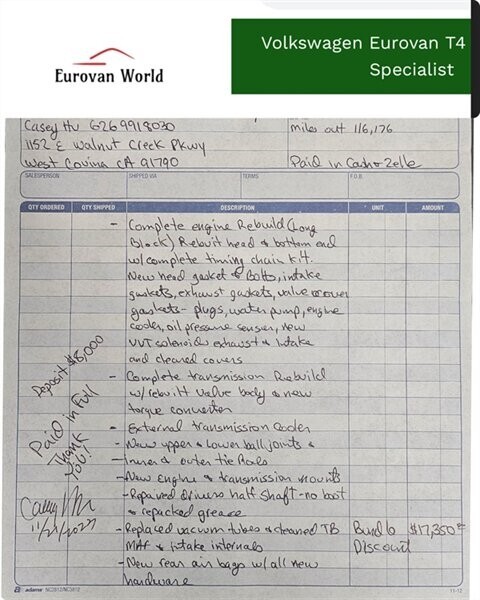 Eurovan World
Volkswagen Eurovan T4
Specialist
Casey Hu 6269918030
miles out 116,176
1152 E Walnut Creek Pkwy
West Covina CA 91790
Paid in Cash or Zelle
SALESPERSON SHIPPED VIA TERMS F.O.B.
QTY ORDERED QTY SHIPPED DESCRIPTION UNIT AMOUNT
- Complete engine Rebuild (Long
Block) Rebuilt head & bottom end
w/complete timing chain kit.
New head gasket & Bolts, intake
gaskets, exhaust gaskets, valve cover
gaskets - plugs, water pump, engine
cooler, oil pressure sensor, new
VVT solenoids exhaust & Intake
and cleaned covers
Deposit $8,000
- Complete transmission Rebuild
w/rebuilt valve body & new
torque converter
Paid in Full
Thank
You!
- External transmission Cooler
- New upper & Lower ball joints &
- inner & outer tie Rods
- New engine & transmission mounts
- Repaired drivers half shaft - no boot
& repacked grease
11/21/2023
- Replaced vacuum tubes & cleaned TB
MAF & intake internals
Bundle
Discount
$17,350
- New rear air bags w/ all new
hardware
adams NC2812/NC3812
11-12